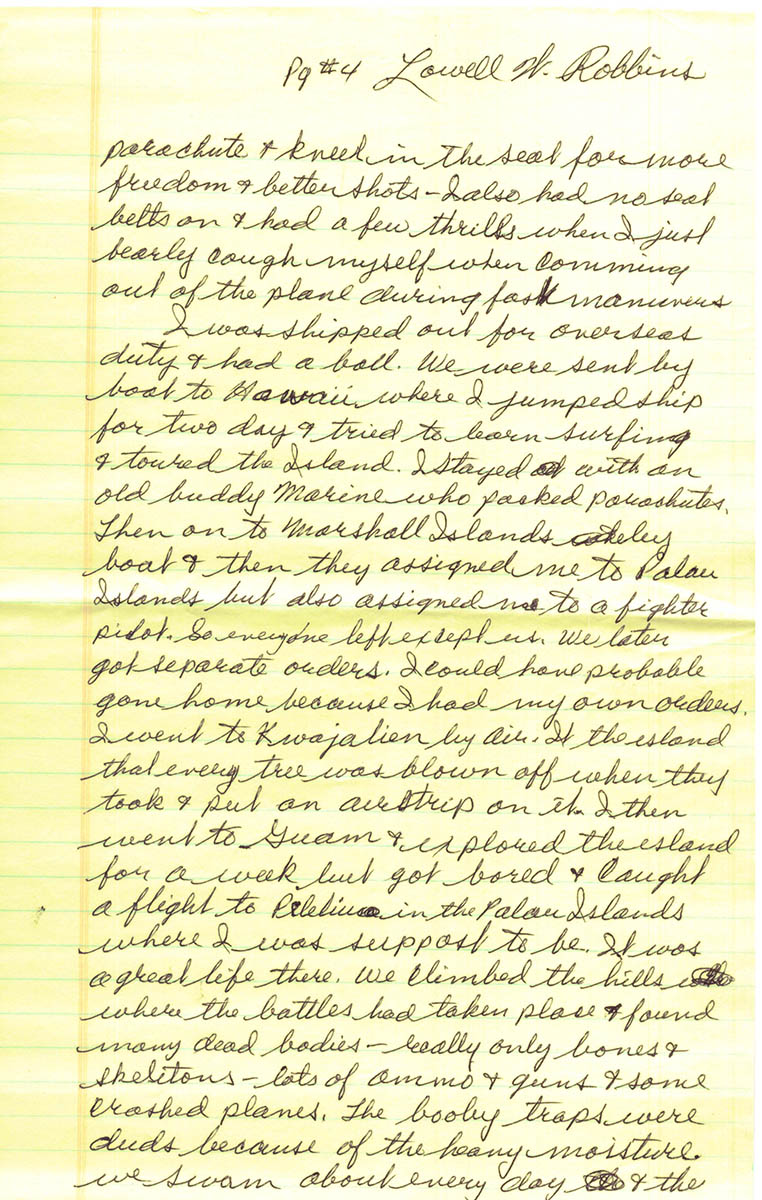 Pg #4 Lowell W. Robbins
parachute & kneel in the seat for more
freedom & better shots – I also had no seat
belts on & had a few thrills when I just
bearly cough myself when comming
out of the plane during fast manuvers
I was shipped out for overseas
duty & had a ball. We were sent by
boat to Hawaii where I jumped ship
for two day & tried to learn surfing
& toured the Island. I stayed with an
old buddy Marine who packed parachutes.
Then on to Marshall Islands by
boat & then they assigned me to Palau
Islands but also assigned me to a fighter
pilot. So everyone left except us. We later
got separate orders. I could have probable
gone home because I had my own orders.
I went to Kwajalien by air. It the island
that every tree was blown off when they
took & put an airstrip on it. I then
went to Guam & explored the island
for a week but got bored & caught
a flight to in the Palau Islands
where I was suppast to be. It was
a great life there. We climbed the hills
where the battles had taken place & found
many dead bodies – really only bones &
skeletons – lots of ammo & guns & some
crashed planes. The booby traps were
duds because of the heavy moisture.
we swam about every day & the